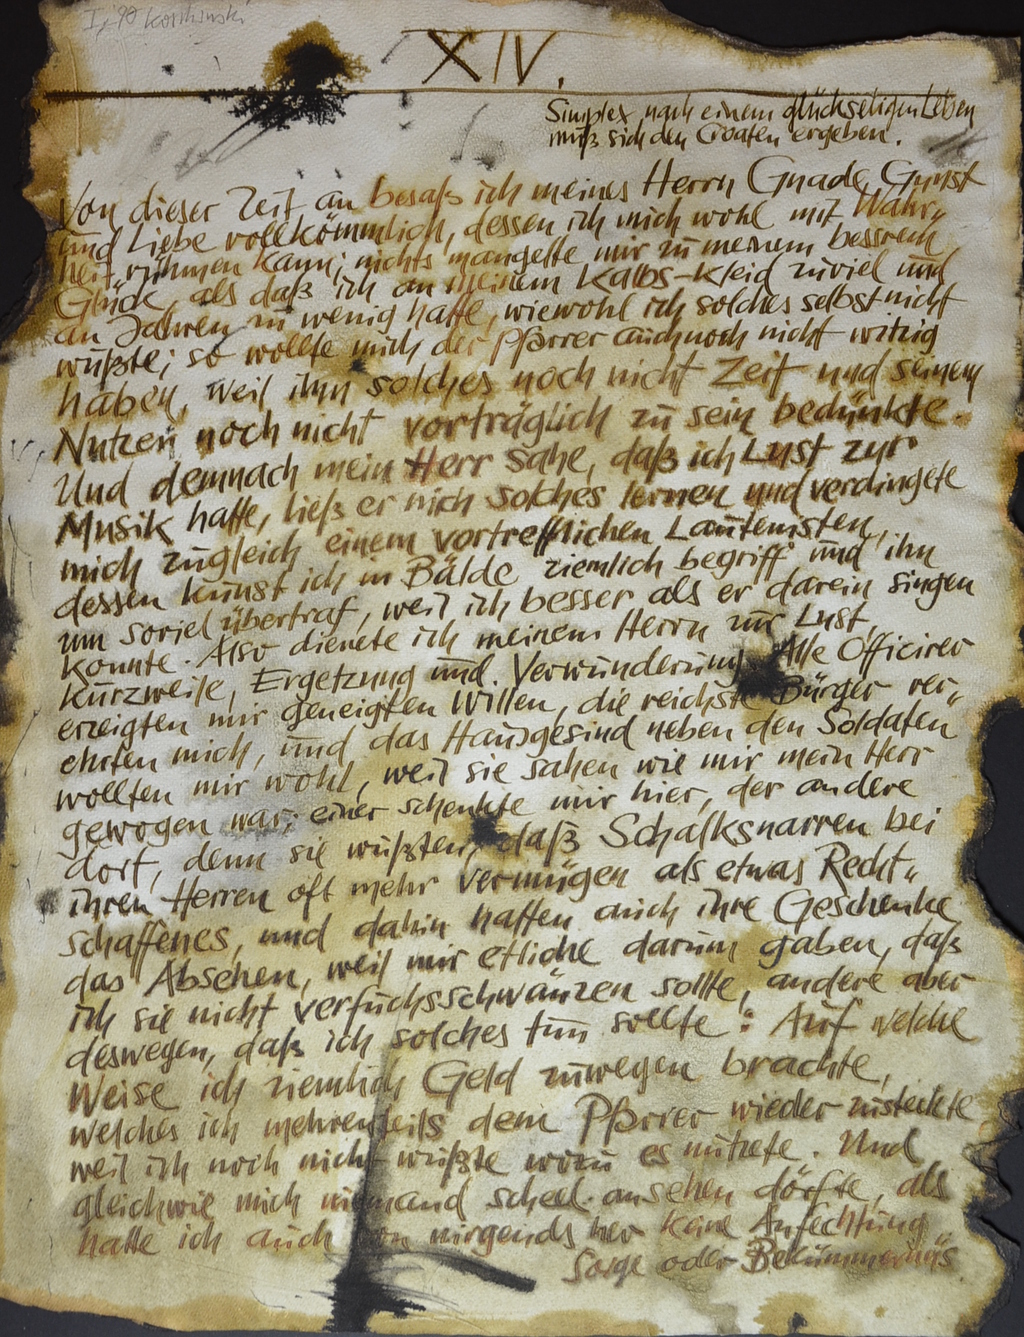 XIV.
Simplex nach einem glückseligen Leben
muß sich den Croaten ergeben.
Von dieser Zeit an besaß ich meines Herrn Gnade, Gunst
und Liebe vollkömmlich, dessen ich mich wohl mit Wahr„
heit rühmen kann; nichts mangelte mir zu meinem bessrem
Glück, als daß ich an meinem Kalbs-Kleid zuviel und
an Jahren zu wenig hatte, wiewohl ich solches selbst nicht
wußte; so wollte mich der Pfarrer auch noch nicht witzig
haben, weil ihn solches noch nicht Zeit und seinem
Nutzen noch nicht vorträglich zu sein bedünkte.
Und demnach mein Herr sahe, daß ich Lust zur
Musik hatte, ließ er mich solches lernen und verdingete
mich zugleich einem vortrefflichen Lautenisten,
dessen Kunst ich in Bälde ziemlich begriff und ihn
um soviel übertraf, weil ich besser als er darein singen
konnte. Also dienete ich meinem Herrn zur Lust,
Kurzweile, Ergetzung und Verwunderung. Alle Officirer
erzeigten mir geneigten Willen, die reichste Bürger ver„
ehrten mich, und das Hausgesind neben den Soldaten
wollten mir wohl, weil sie sahen wie mir mein Herr
gewogen war; einer schenkte mir hier, der andere
dort, denn sie wußten, daß Schalksnarren bei
ihren Herren oft mehr vermügen als etwas Recht„
schaffenes, und dahin hatten auch ihre Geschenke
das Absehen, weil mir etliche darum gaben, daß
ich sie nicht verfuchsschwänzen sollte, andere aber
deswegen, daß ich solches tun sollte: Auf welche
Weise ich ziemlich Geld zuwegen brachte,
welches ich mehrenteils dem Pfarrer wieder zusteckte
weil ich noch nicht wußte wozu es nutzete. Und
gleichwie mich niemand scheel ansehen dörfte, als
hatte ich auch von nirgends her keine Anfechtung
Sorge oder Bekümmernüs